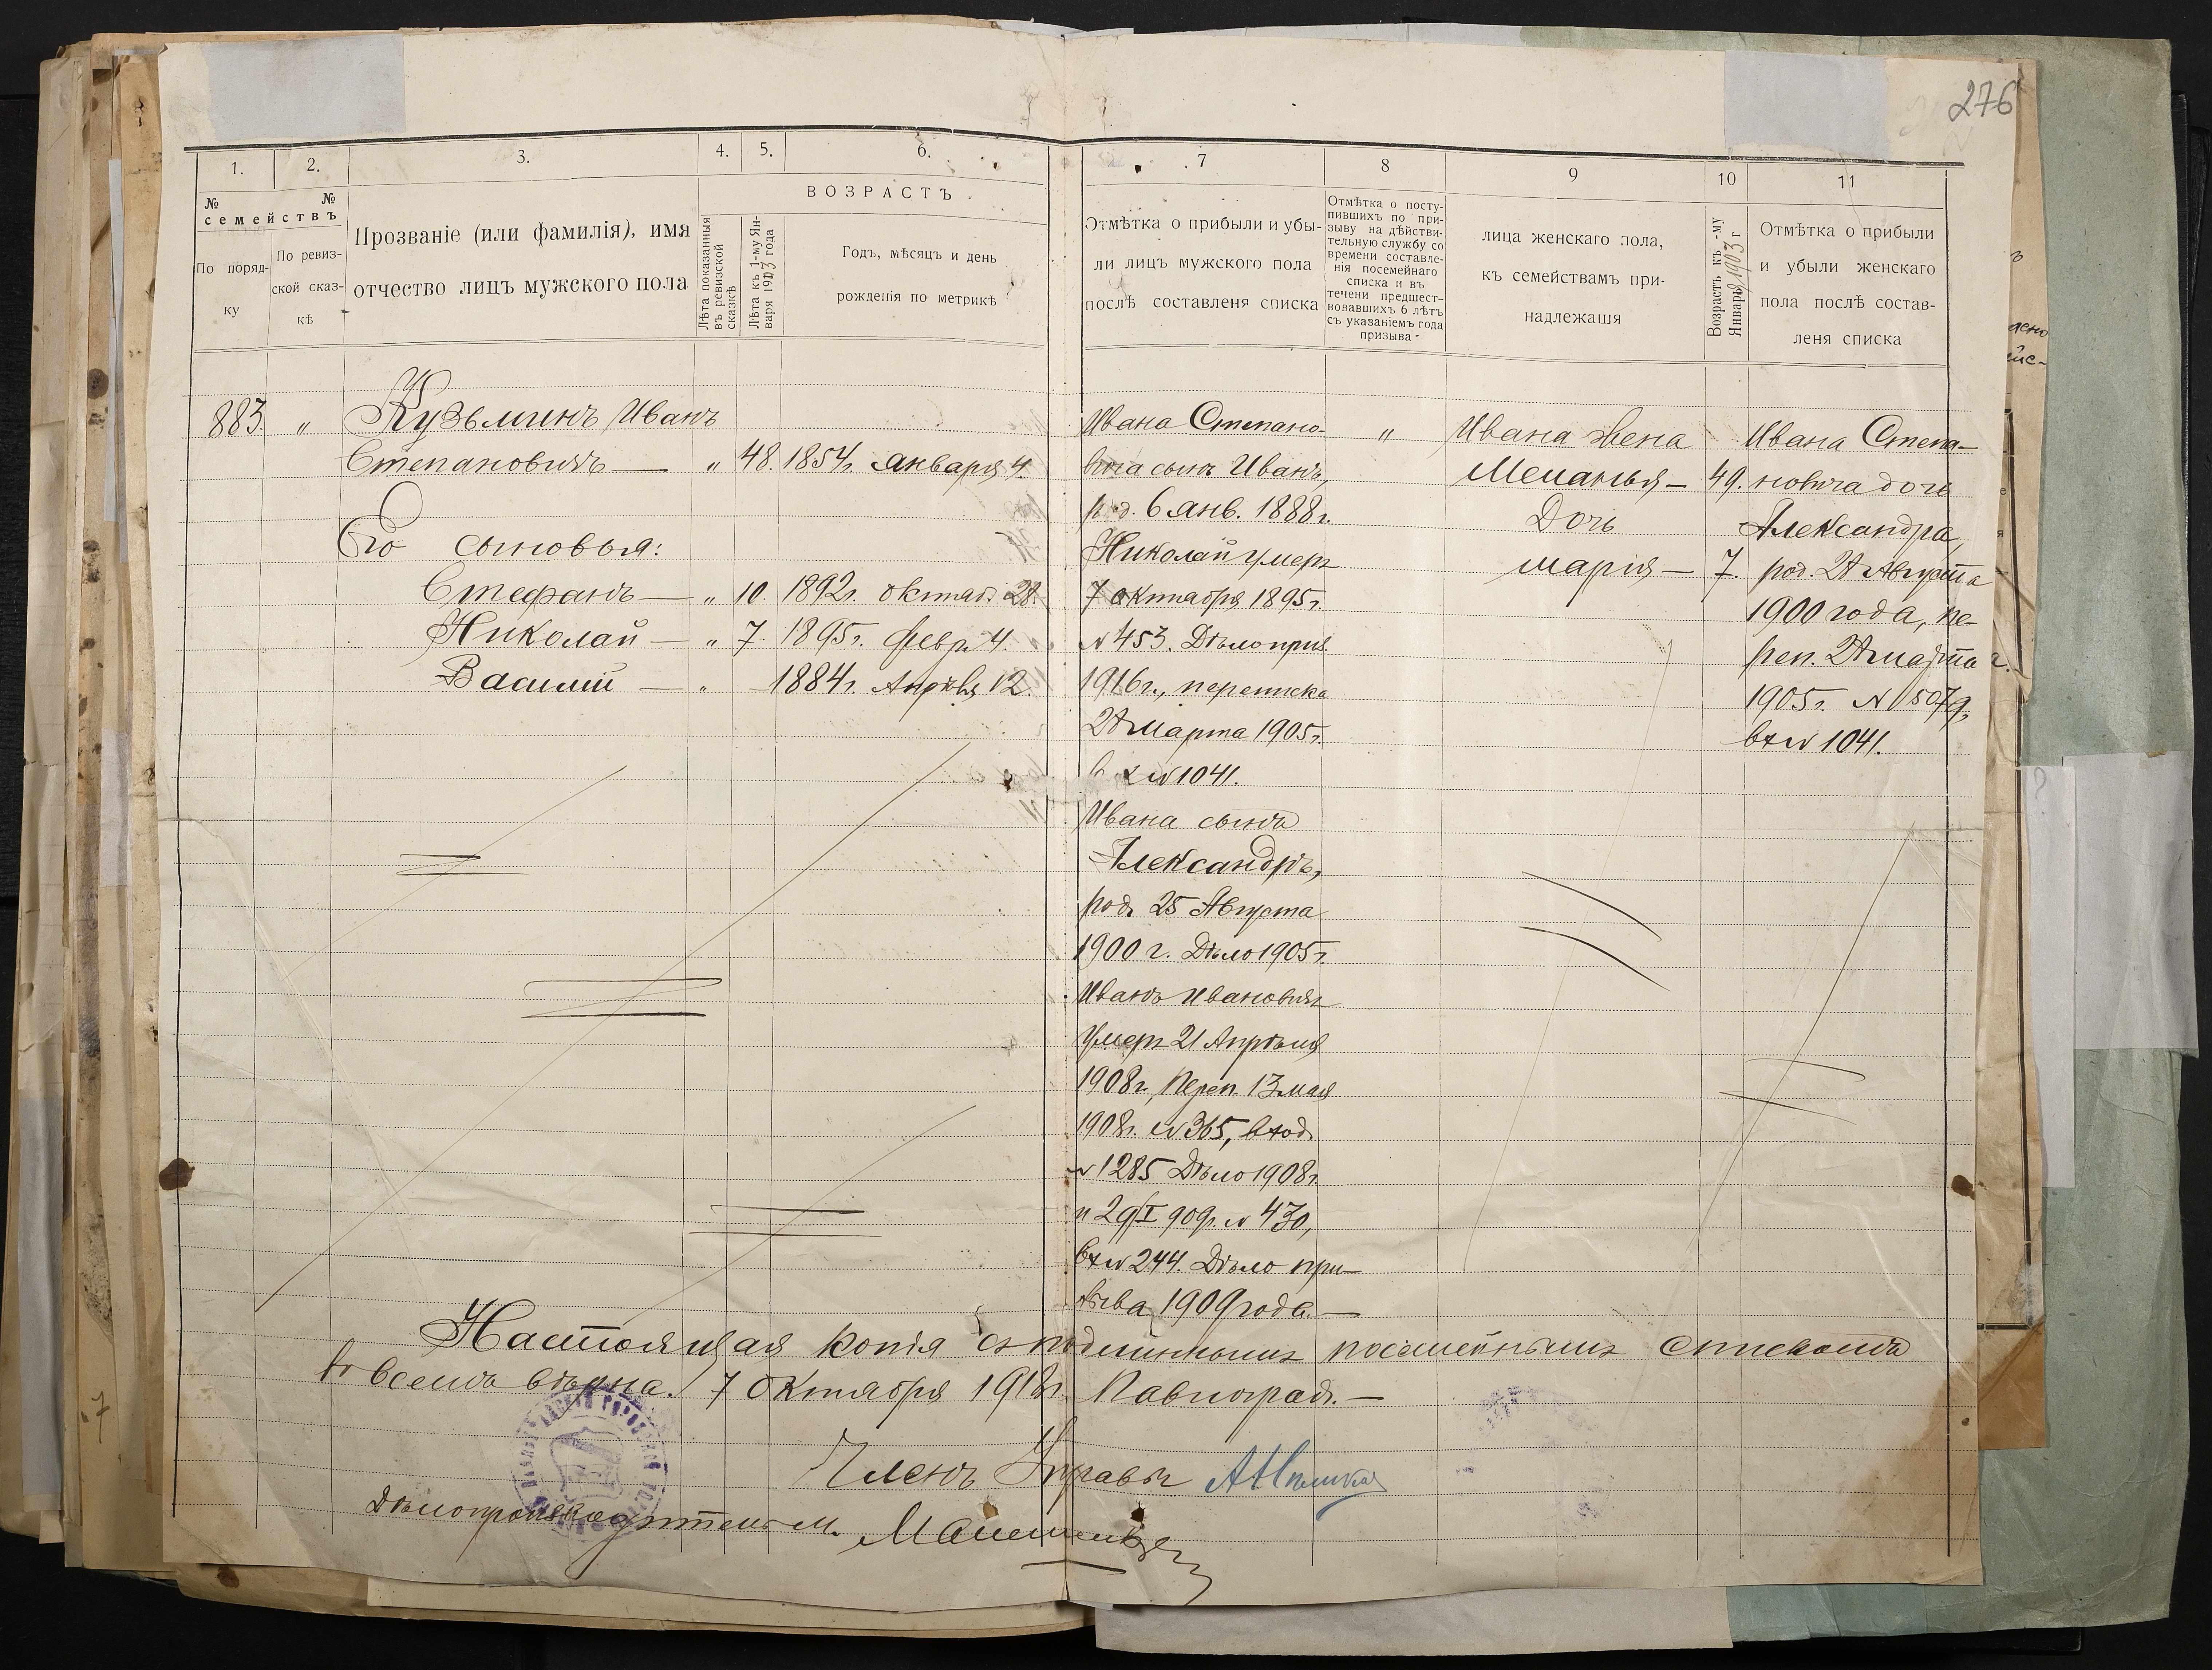 276
1. 2. 3. 4. 5. 6. 7 8 9 10 11
№ № семействъ
По поряд-
ку
По ревиз-
ской сказ-
кѣ
Прозваніе (или фамилія), имя
отчество лицъ мужского пола
ВОЗРАСТЪ
Лѣта показанныя
въ ревизской
сказкѣ
Лѣта къ 1-му Ян-
варя 1903 года
Годъ, мѣсяцъ и день
рожденія по метрикѣ
Отмѣтка о прибыли и убы-
ли лицъ мужского пола
послѣ составленя списка
Отмѣтка о посту-
пившихъ по при-
зыву на дѣйстви-
тельную службу со
времени составле-
нія посемейнаго
списка и въ
течени предшест-
вовавшихъ 6 лѣтъ
съ указаніемъ года
призыва
лица женскаго пола,
къ семействамъ при-
надлежашя
Возрастъ къ -му
Январь 1903 г
Отмѣтка о прибыли
и убыли женскаго
пола послѣ состав-
леня списка
883. " Кузьминъ Иванъ
Степановичъ — " 48. 1854г. января 4.
Его сыновья:
Стефанъ — " 10. 1892г. октяб. 28.
Николай — " 7. 1895г. февр. 4.
Василий — " — 1884г. Апрѣля 12.
Ивана Степано-
вича сынъ Иванъ,
род. 6 янв. 1888г.
Николай умеръ
7 октября 1895г.
№ 453. Дѣло приз.
1916г., переписка
21 марта 1905г.
вх № 1041.
Ивана сынъ
Александръ,
род. 25 Августа
1900 г. Дѣло 1905г.
Иванъ Ивановичъ
умеръ 21 Апрѣля
1908г., переп. 13 мая
1908г. № 365, вход.
№ 1285 Дѣло 1908г.
и 29/I 909г. № 430,
вх № 244. Дѣло при-
зыва 1909 года. —
"
Ивана жена
Меланья — 49.
Дочь
Марія — 7.
Ивана Степа-
новича дочь
Александра,
род. 21 Августа
1900 года, пе-
реп. 21 марта
1905г. № 5079,
вх № 1041.
Настоящая копія съ подлиннымъ посемейнымъ спискомъ
во всемъ вѣрна. 7 Октября 1918г. Павлоград. —
Членъ Управы
Дѣлопроизводитель М.